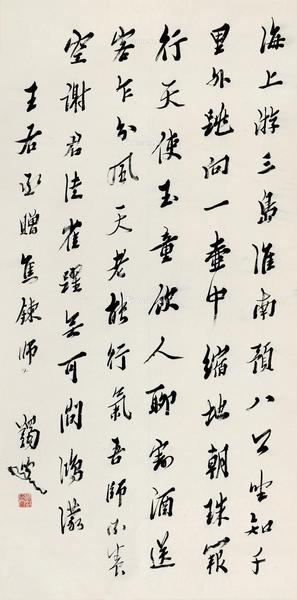 海上游三島淮南預八公坐知千
里外跳向一壺中縮地朝珠闕
行天使玉童飲人聊割酒送
客乍分風天老能行氣吾師不養
空謝君徒雀躍無可問鴻濛
王右丞贈焦鍊師
蠲叟